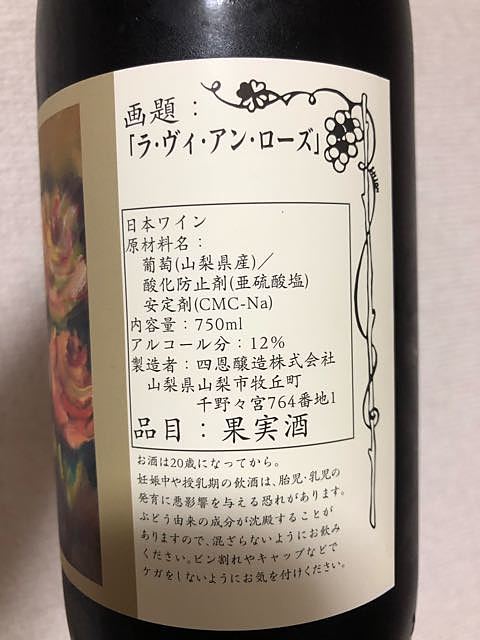 画題：
「ラ・ヴィ・アン・ローズ」
日本ワイン
原材料名：
葡萄(山梨県産)／
酸化防止剤(亜硫酸塩)
安定剤(CMC-Na)
内容量：750ml
アルコール分：12%
製造者：四恩醸造株式会社
山梨県山梨市牧丘町
千野々宮764番地1
品目：果実酒
お酒は20歳になってから。
妊娠中や授乳期の飲酒は、胎児・乳児の
発育に悪影響を与える恐れがあります。
ぶどう由来の成分が沈殿することが
ありますので、混ざらないようにお飲み
ください。ビン割れやキャップなどで
ケガをしないようにお気を付けください。